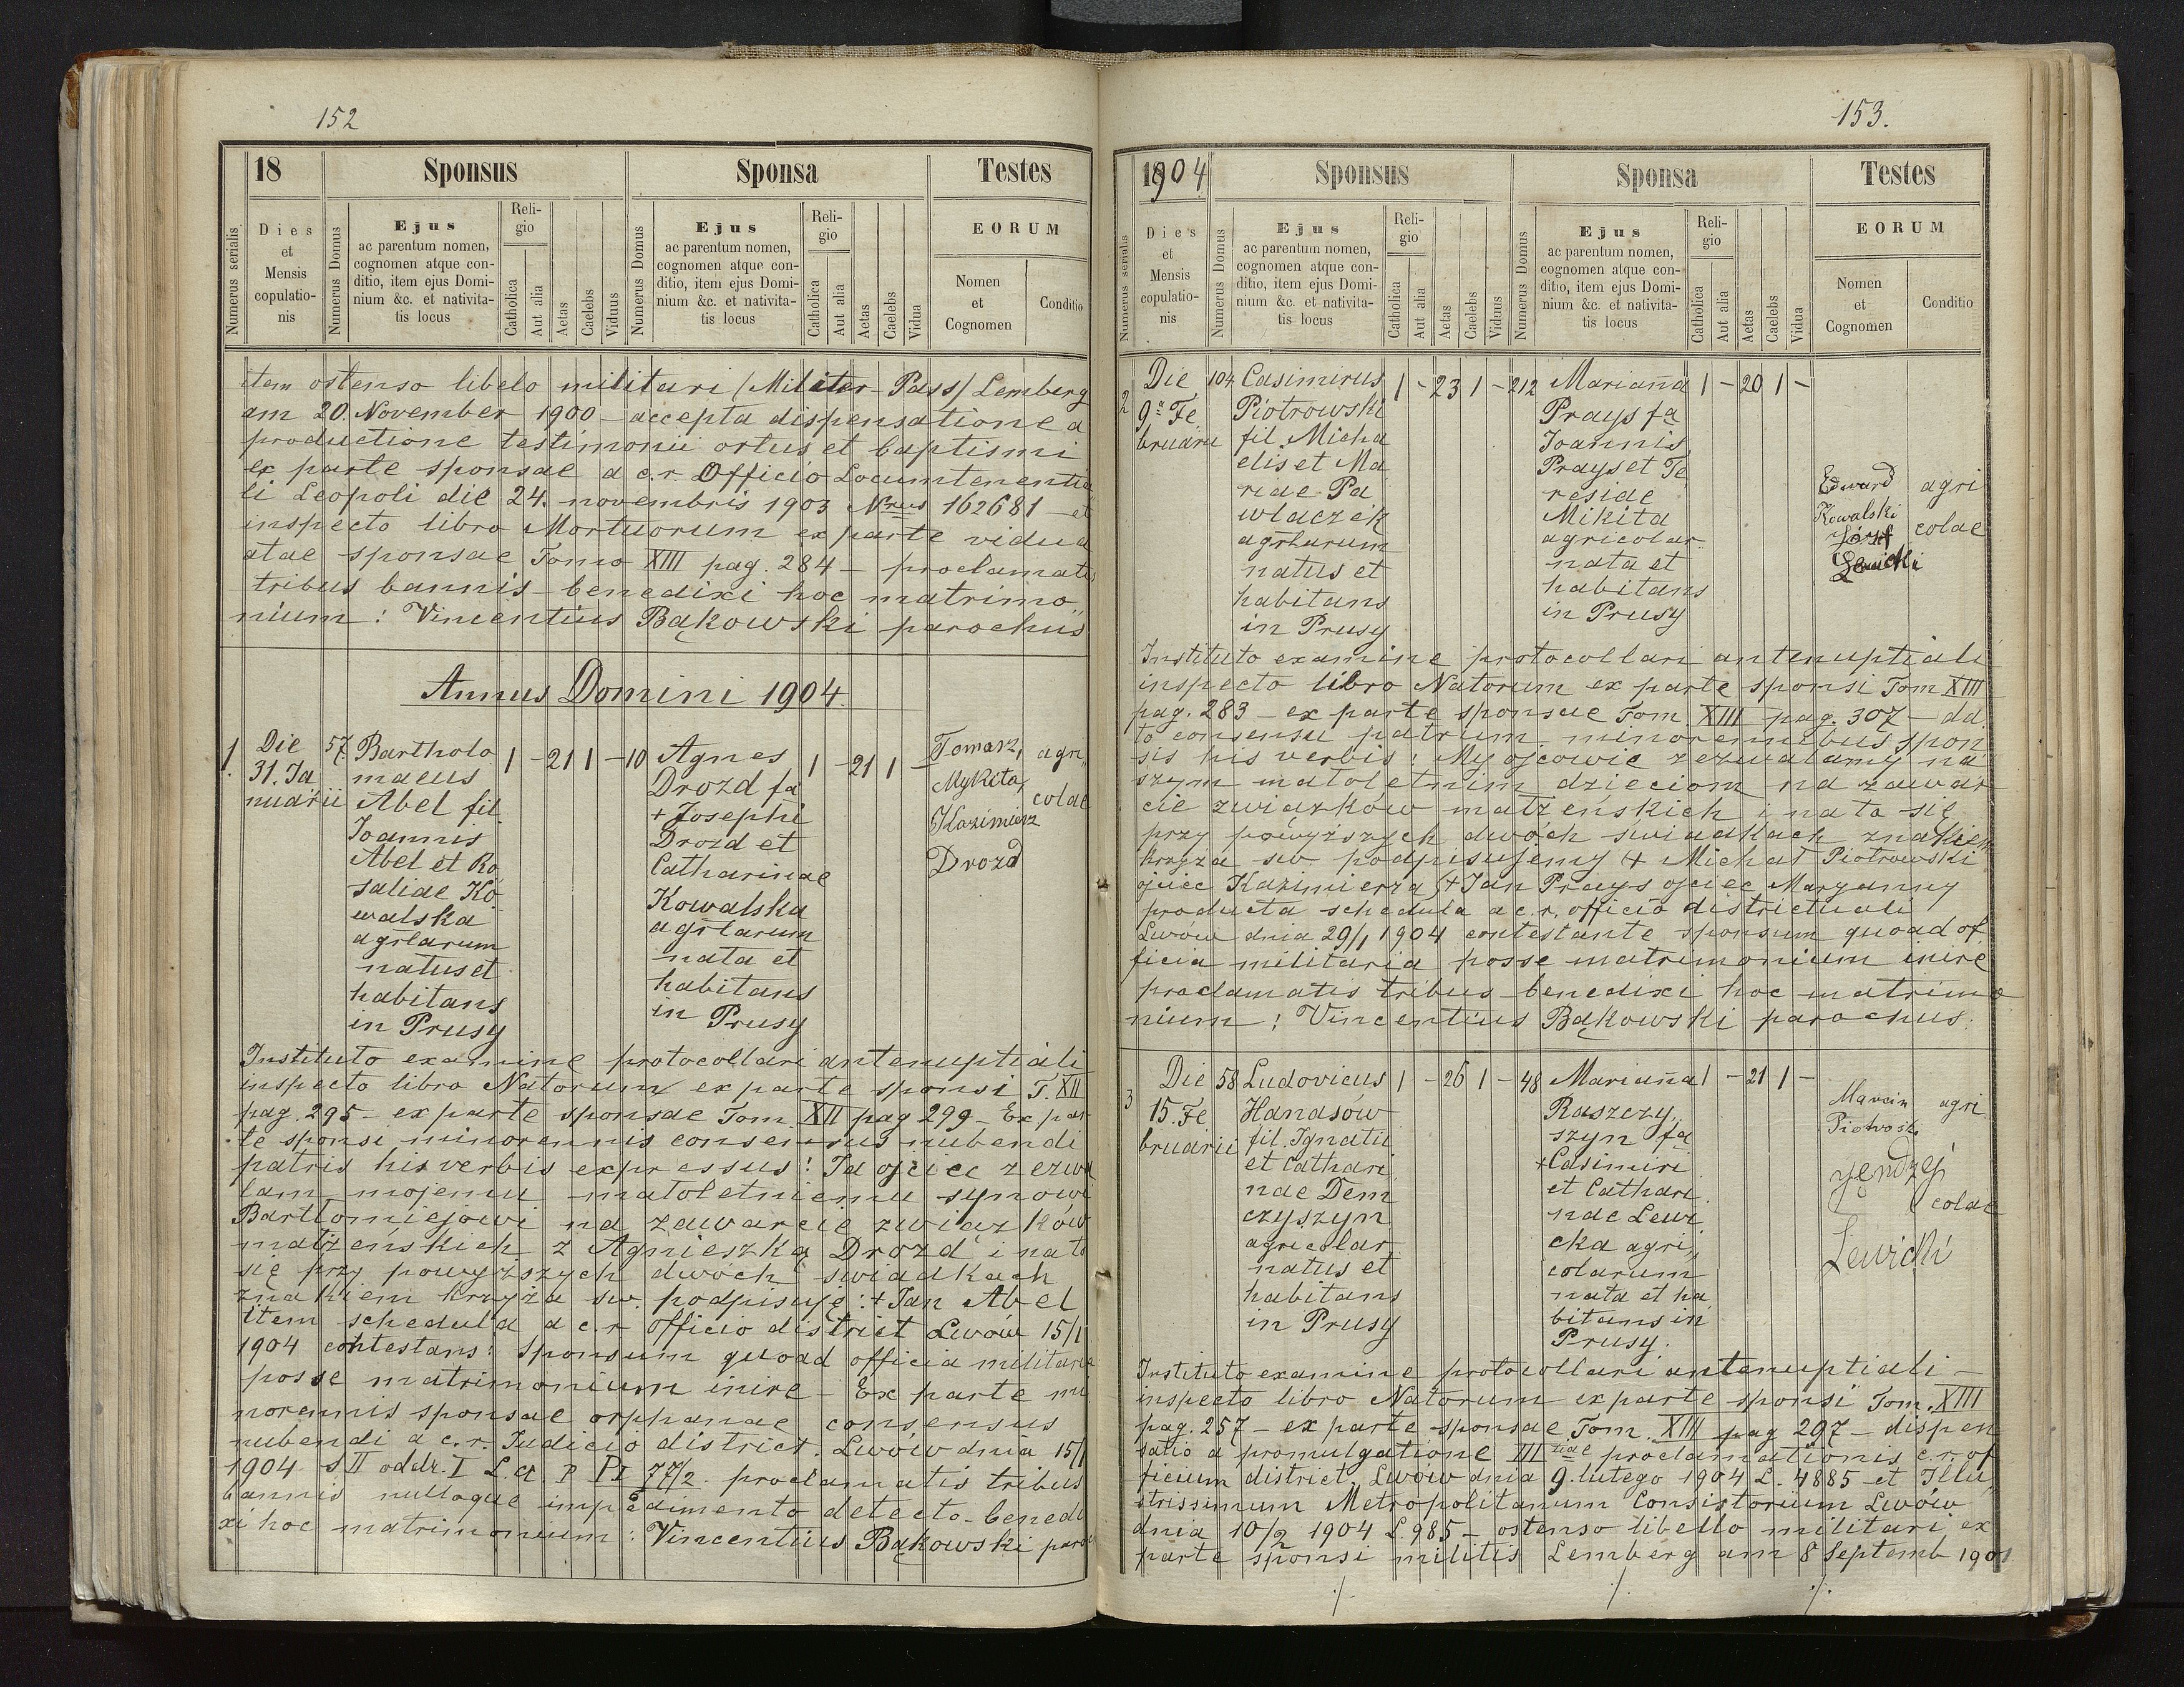 152
18 Sponsus Sponsa Testes
Numerus serialis
Dies et Mensis copulationis
Numerus Domus
Ejus
ac parentum nomen,
cognomen atque con-
ditio, item ejus Domi-
nium &c. et nativita-
tis locus
Reli-
gio
Catholica
Aut alia
Aetas
Caelebs
Viduus
Numerus Domus
Ejus
ac parentum nomen,
cognomen atque con-
ditio, item ejus Domi-
nium &c. et nativita-
tis locus
Reli-
gio
Catholica
Aut alia
Aetas
Caelebs
Vidua
EORUM
Nomen
et
Cognomen
Conditio
item ostenso libelo militari /Militer-Pass/ Lemberg
am 20. November 1900 – accepta dispensatione a
productione testimonii ortus et baptismi
ex parte sponsae a c.r. Officio Locumtenentia
li Leopoli die 24. novembris 1903 Nrus 162681 – et
inspecto libro Mortuorum ex parte vidu
atae sponsae Tomo XIII pag. 284 – proclamatis
tribus bannis – benedixi hoc matrimo„
nium: Vincentius Bąkowski parochus
Annus Domini 1904.
1. Die 57. Bartholo 1 – 21 1 – 10 Agnes 1 – 21 1 – Tomarz, agri„
31. Ja maeus Drozd fa Mykita, colae
nuarii Abel fil. + Josephi Kazimierz
Joannis Drozd et Drozd
Abel et Ro Catharinae
saliae Ko Kowalska
walska agrlarum
agrlarum nata et
natus et habitans
habitans in Prusy
in Prusy
Instituto examine protocollari antenuptiali
inspecto libro Natorum ex parte sponsi T. XII
pag. 295 – ex parte sponsae Tom. XII pag 299 – Ex par
te sponsi minorennis consensus nubendi
patris his verbis expressus: Ja ojciec zezwa
lam mojemu małoletniemu synowi
Bartłomiejowi na zawarcie związków
małżeńskich z Agnieszką Drozd i na to
się przy powyższych dwóch świadkach
znakiem krzyża św. podpisuję: + Jan Abel
item schedula a c.r. officio district Lwów 15/1
1904 contestans: sponsum quoad officia militaria
posse matrimonium inire – Ex parte mi
norennis sponsae orphanae consensus
nubendi a c.r. Judicio district. Lwów dnia 15/1
1904 S.II oddz. I L. cz. P II 77/2 proclamatis tribus
bannis nulloque impedimento detecto – benedi
xi hoc matrimonium: Vincentius Bąkowski paro
153.
1904 Sponsus Sponsa Testes
Numerus serialis
Dies et Mensis copulationis
Numerus Domus
Ejus
ac parentum nomen,
cognomen atque con-
ditio, item ejus Domi-
nium &c. et nativita-
tis locus
Reli-
gio
Catholica
Aut alia
Aetas
Caelebs
Viduus
Numerus Domus
Ejus
ac parentum nomen,
cognomen atque con-
ditio, item ejus Domi-
nium &c. et nativita-
tis locus
Reli-
gio
Catholica
Aut alia
Aetas
Caelebs
Vidua
EORUM
Nomen
et
Cognomen
Conditio
2 Die 104 Casimirus 1 – 23 1 – 212 Marianna 1 – 20 1 –
9a Fe Piotrowski Prays fa
bruarii fil. Micha Joannis
elis et Ma Prays et Te Edward agri
riae Pa resiae Kowalski
wlaczek Mikita Józef colae
agrlarum agricolar. Lewicki
natus et nata et
habitans habitans
in Prusy in Prusy
Instituto examine protocollari antenuptiali
inspecto libro Natorum ex parte sponsi Tom XIII
pag. 283 – ex parte sponsae Tom. XIII pag. 307 – da
to consensu patrum minorennibus spon
sis his verbis: My ojcowie zezwalamy na
szym małoletnim dzieciom na zawar
cie związków małżeńskich i na to się
przy powyższych dwóch świadkach znakiem
krzyża św. podpisujemy + Michał Piotrowski
ojciec Kazimierza + Jan Prays ojciec Maryanny
producta schedula a c.r. officio districtuali
Lwów dnia 29/1 1904 contestante sponsum quoad of
ficia militaria posse matrimonium inire
proclamatis tribus – benedixi hoc matrimo
nium: Vincentius Bąkowski parochus.
3 Die 58 Ludovicus 1 – 26 1 – 48 Marianna 1 – 21 1 –
15. Fe Hanasów Raszczy Marcin agri
bruarii fil. Ignatii szyn fa Piotrosk
et Cathari +Casimiri Jendzej
nae Dem et Cathari colae
czyszyn nae Lewi Lewicki
agricolar cka agri„
natus et colarum
habitans nata et ha
in Prusy bitans in
Prusy.
Instituto examine protocollari antenuptiali –
inspecto libro Natorum ex parte sponsi Tom. XIII
pag. 257 – ex parte sponsae Tom. XIII pag 297 – dispen
satio a promulgatione III tiae proclamationis c.r. of
ficium district. Lwów dnia 9. lutego 1904 L. 4885 – et Illu
strissimum Metropolitanum Consistorium Lwów
dnia 10/2 1904 L. 985 – ostenso libello militari ex
parte sponsi militis Lemberg am 8 Septemb 1901
·/. ·/. ·/.